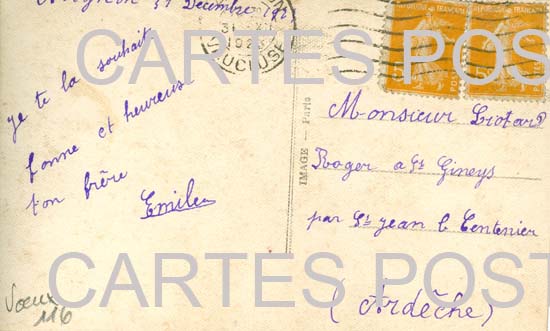 Avignon 31 Décembre 192
31 XII
VAUCLUSE
CARTES POST
je te la souhait
bonne et heureus
ton frère
Emile
IMAGE — Paris
Monsieur Liotard
Roger a St Gineys
par St jean le Centenier
(Ardèche)
CARTES POST
Voeux
116